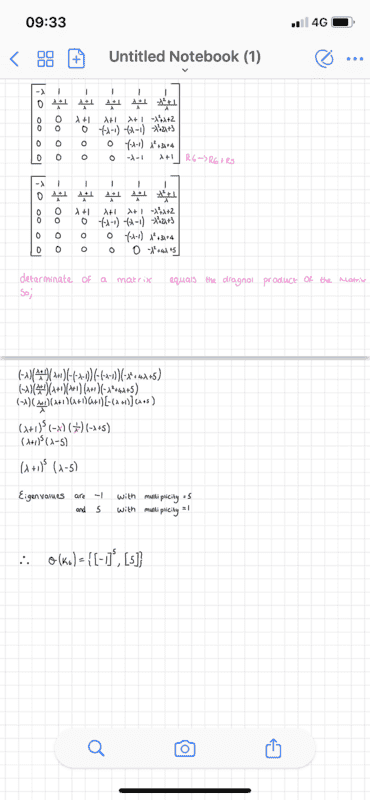 09:33
4G
Untitled Notebook (1)
-λ 1 1 1 1 1
0 λ+1/λ λ+1/λ λ+1/λ λ+1/λ -λ²+1/λ
0 0 λ+1 λ+1 λ+1 -λ²+λ+2
0 0 0 -(-λ-1) -(-λ-1) -λ²+2λ+3
0 0 0 0 -(-λ-1) λ²+3λ+4
0 0 0 0 -λ-1 λ+1
R6→R6+R5
-λ 1 1 1 1 1
0 λ+1/λ λ+1/λ λ+1/λ λ+1/λ -λ²+1/λ
0 0 λ+1 λ+1 λ+1 -λ²+λ+2
0 0 0 -(-λ-1) -(-λ-1) -λ²+2λ+3
0 0 0 0 -(-λ-1) λ²+3λ+4
0 0 0 0 0 -λ²+4λ+5
determinate of a matrix equals the diagnal product of the matrix
So,
(-λ)(λ+1/λ)(λ+1)(-(-λ-1))(-(-λ-1))(-λ²+4λ+5)
(-λ)(λ+1/λ)(λ+1)(λ+1)(λ+1)(-λ²+4λ+5)
(λ+1)⁵(-λ)(-λ+5)
(λ+1)⁵(λ-5)
(λ+1)⁵ (λ-5)
Eigenvalues are -1 with multiplicity =5
and 5 with multiplicity =1
∴ σ(K₆) = {[-1]⁵, [5]}